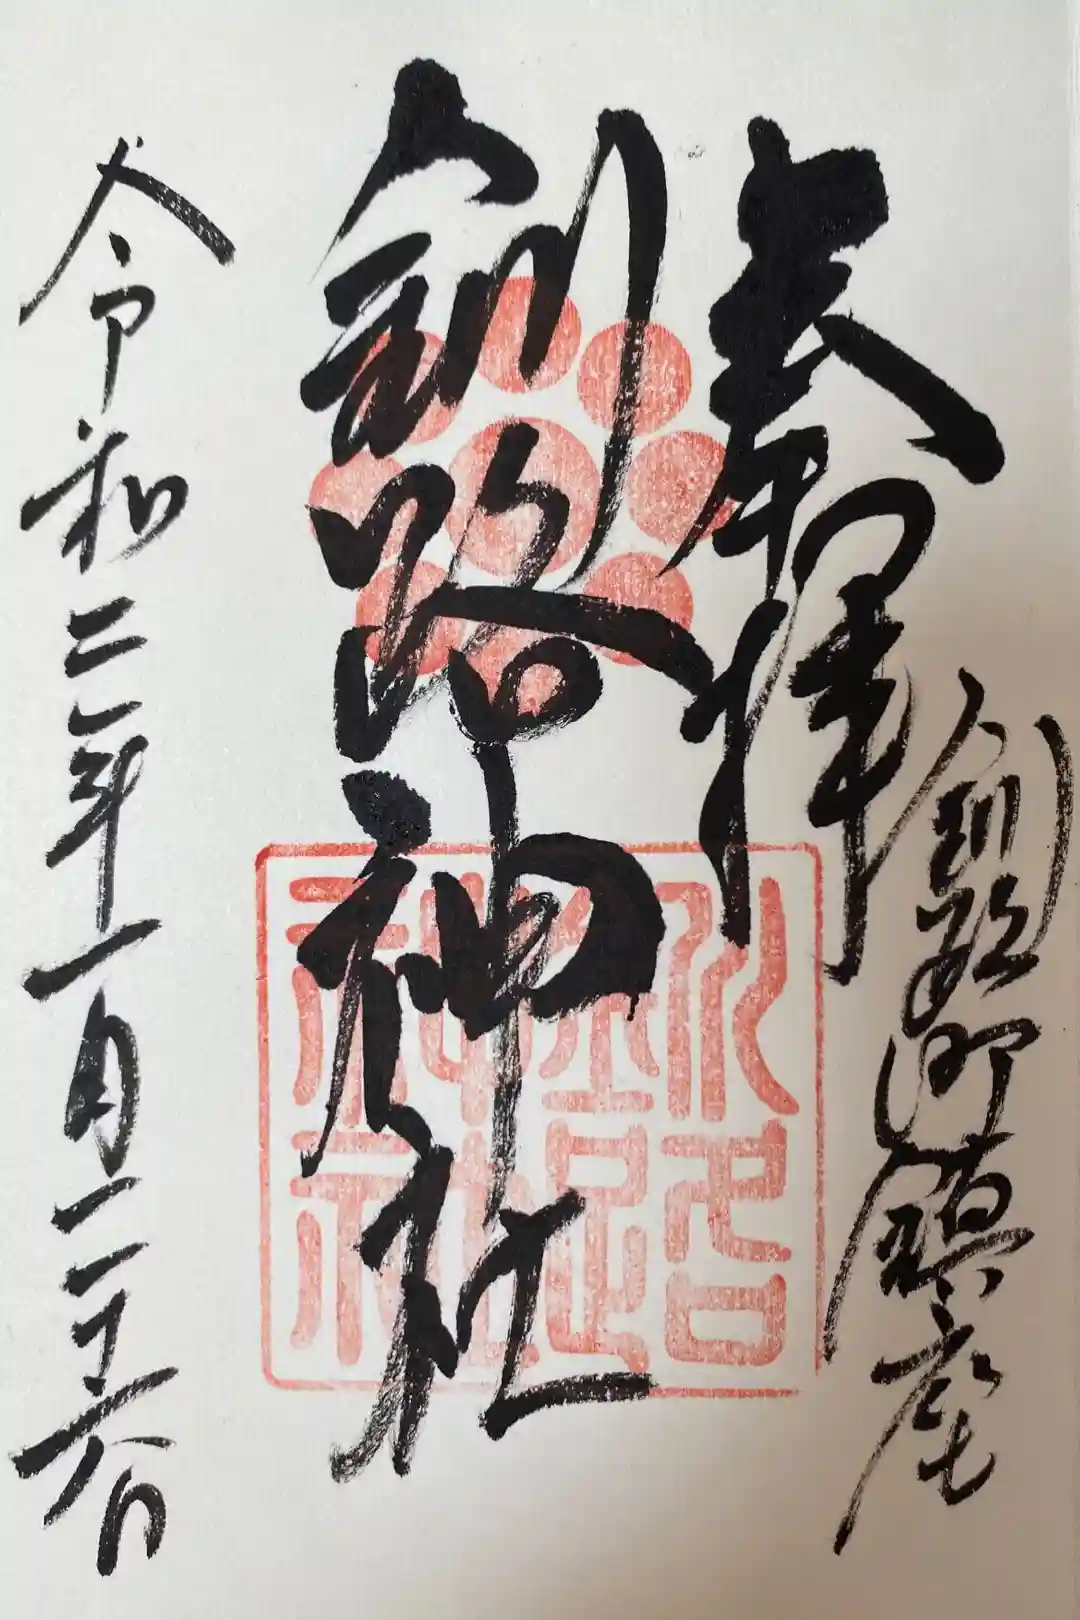 奉拝
釧路町鎮座
釧路神社
釧路神社
令和二年一月二十六日